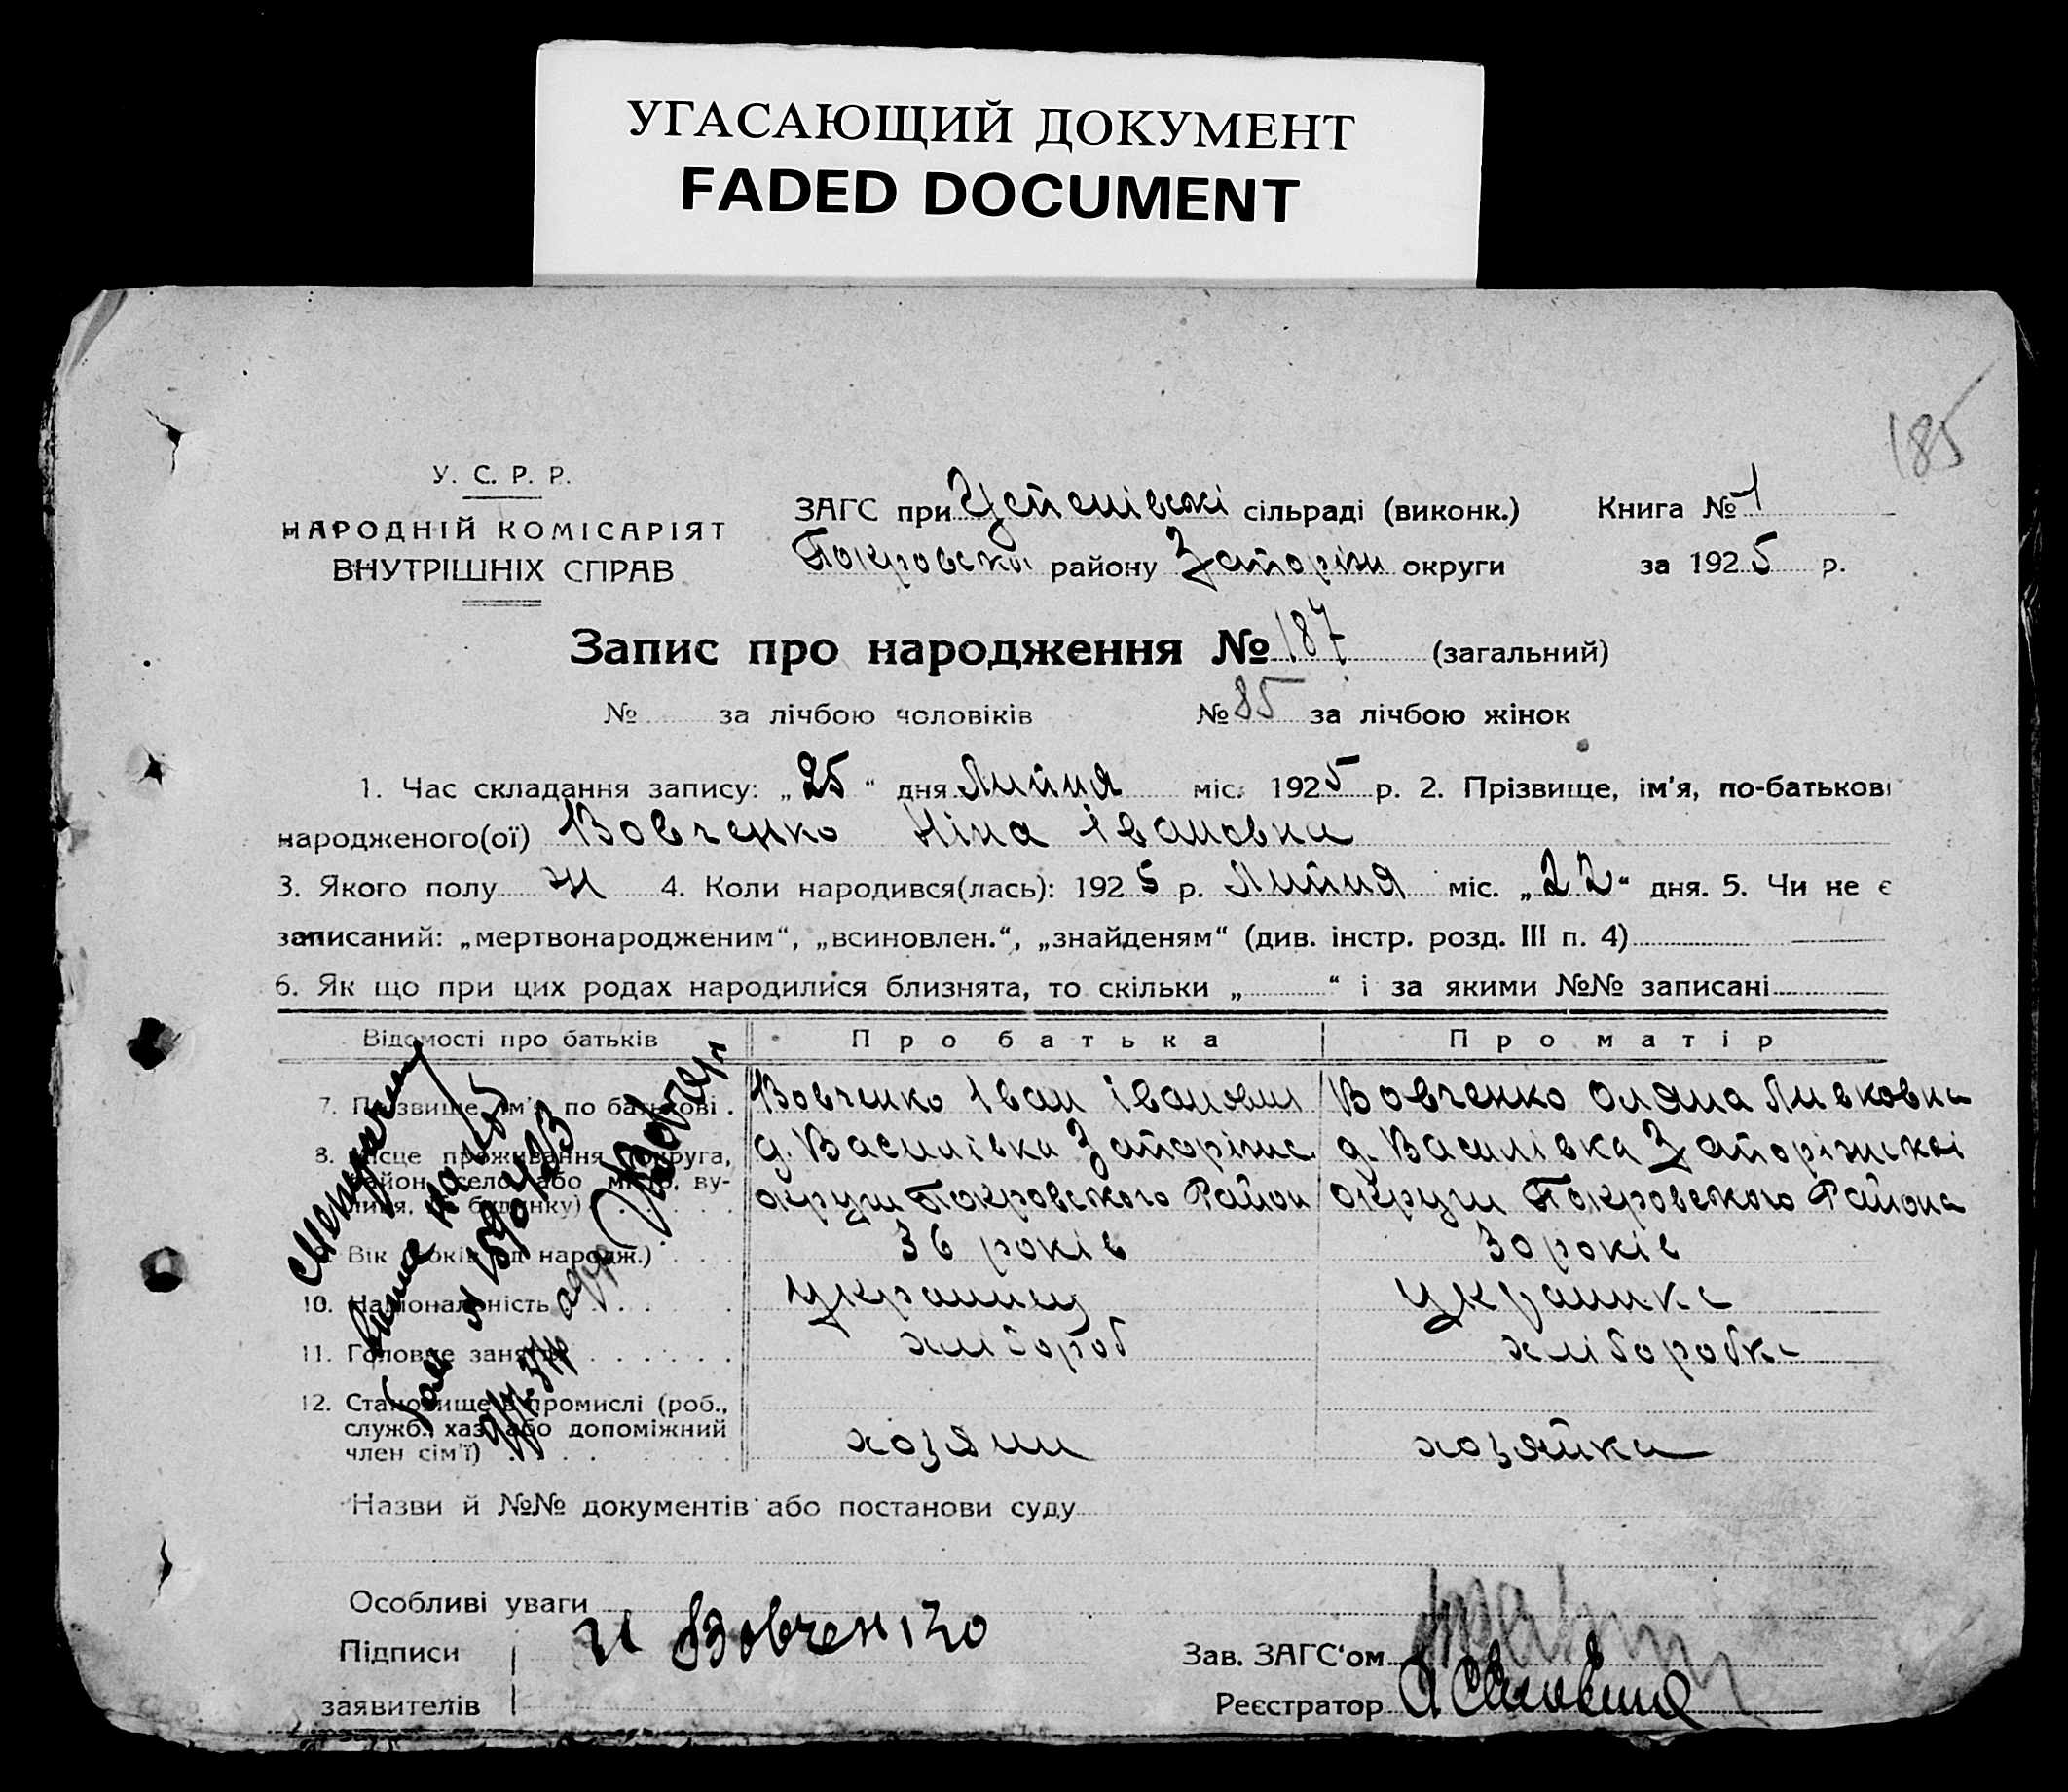 УГАСАЮЩИЙ ДОКУМЕНТ
FADED DOCUMENT
185
У. С. Р. Р.
НАРОДНІЙ КОМІСАРІЯТ
ВНУТРІШНІХ СПРАВ
ЗАГС при сільраді (виконк.) Книга № 1
Покровскої району Запоріжж округи за 1925 р.
Запис про народження № 187 (загальний)
№ за лічбою чоловіків № 85 за лічбою жінок
1. Час складання запису: „25“ дня Липня міс. 1925 р. 2. Прізвище, ім'я, по-батькові
народженого(ої) Вовченко Ніна Івановна
3. Якого полу ж 4. Коли народився(лась): 1925 р. Липня міс. „22“ дня. 5. Чи не є
записаний: „мертвонародженим“, „всиновлен.“, „знайденям“ (див. інстр. розд. III п. 4)
6. Як що при цих родах народилися близнята, то скільки „ “ і за якими №№ записані
Відомості про батьків Про батька Про матір
7. Прізвище, ім'я, по батькові Вовченко Іван Іванович Вовченко Оляна
8. Місце проживання (округа, район, село або місто, вулиця, № будинку) д. Василівка Запоріжс д. Василівка Запоріжскої
округи Покровского Район округи Покровского Района
9. Вік (років від народж.) 36 років 30 років
10. Національність украинец украинка
11. Головне заняття хлібороб хліборобка
12. Становище в промислі (роб.,
служб., хаз. або допоміжний
член сім'ї) хозяин хозяйка
Назви й №№ документів або постанови суду
Особливі уваги
Підписи И Вовченко Зав. ЗАГС'ом
заявителів Реєстратор